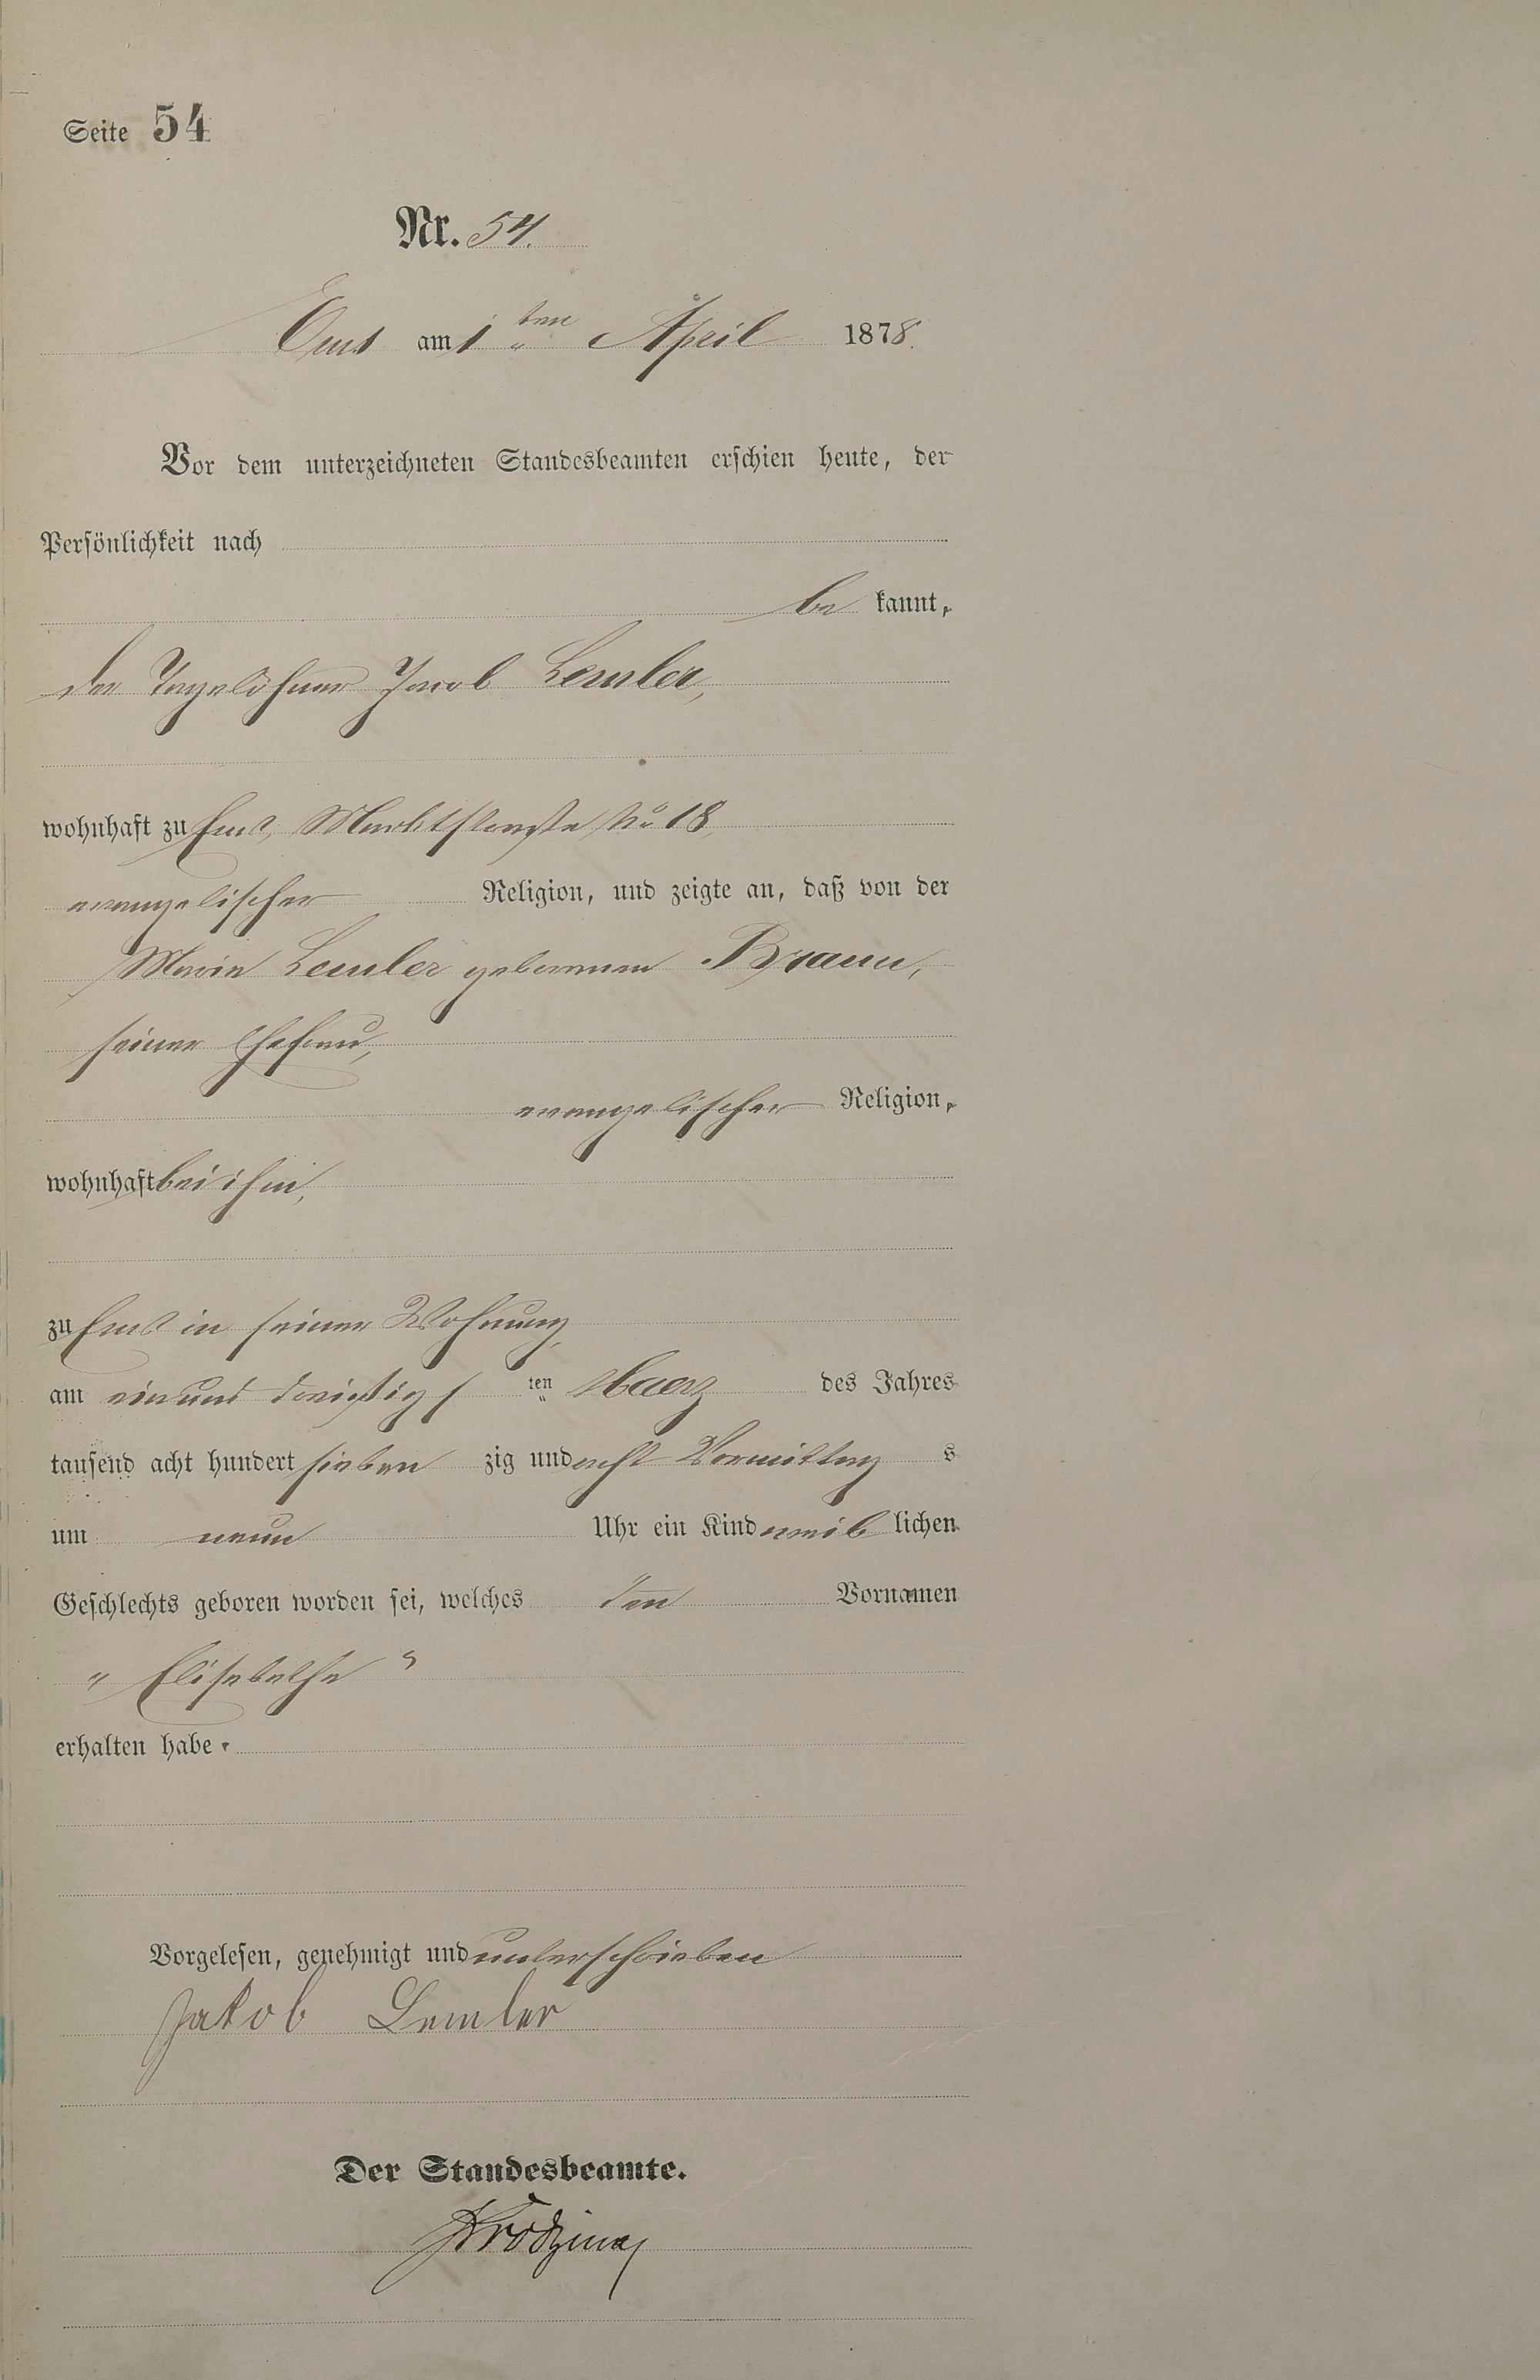 Seite 54
Nr. 54.
Ems am 1 ten April 1878.
Vor dem unterzeichneten Standesbeamten erschien heute, der
Persönlichkeit nach
be kannt,
der Tagelöhner Jacob Lemler,
wohnhaft zu Ems, Marktstraße No 18,
evangelischer Religion, und zeigte an, daß von der
Marie Lemler geborenen Braun,
seiner Ehefrau,
evangelischer Religion,
wohnhaft bei ihm,
zu Ems in seiner Wohnung,
am einund dreißig s ten Maerz des Jahres
tausend acht hundert sieben zig und acht Vormittag s
um neun Uhr ein Kind weib lichen
Geschlechts geboren worden sei, welches den Vornamen
„ Elisabethe "
erhalten habe.
Vorgelesen, genehmigt und unterschrieben
Jakob Lemler
Der Standesbeamte.